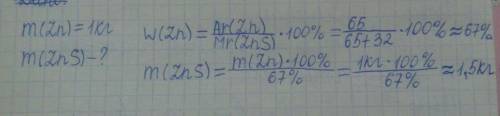 m(Zn)=1кг
m(ZnS)-?
W(Zn)=Ar(Zn)/Mr(ZnS)·100%=65/65+32·100%≈67%
m(ZnS)=m(Zn)·100%/67%=1кг·100%/67%≈1,5кг